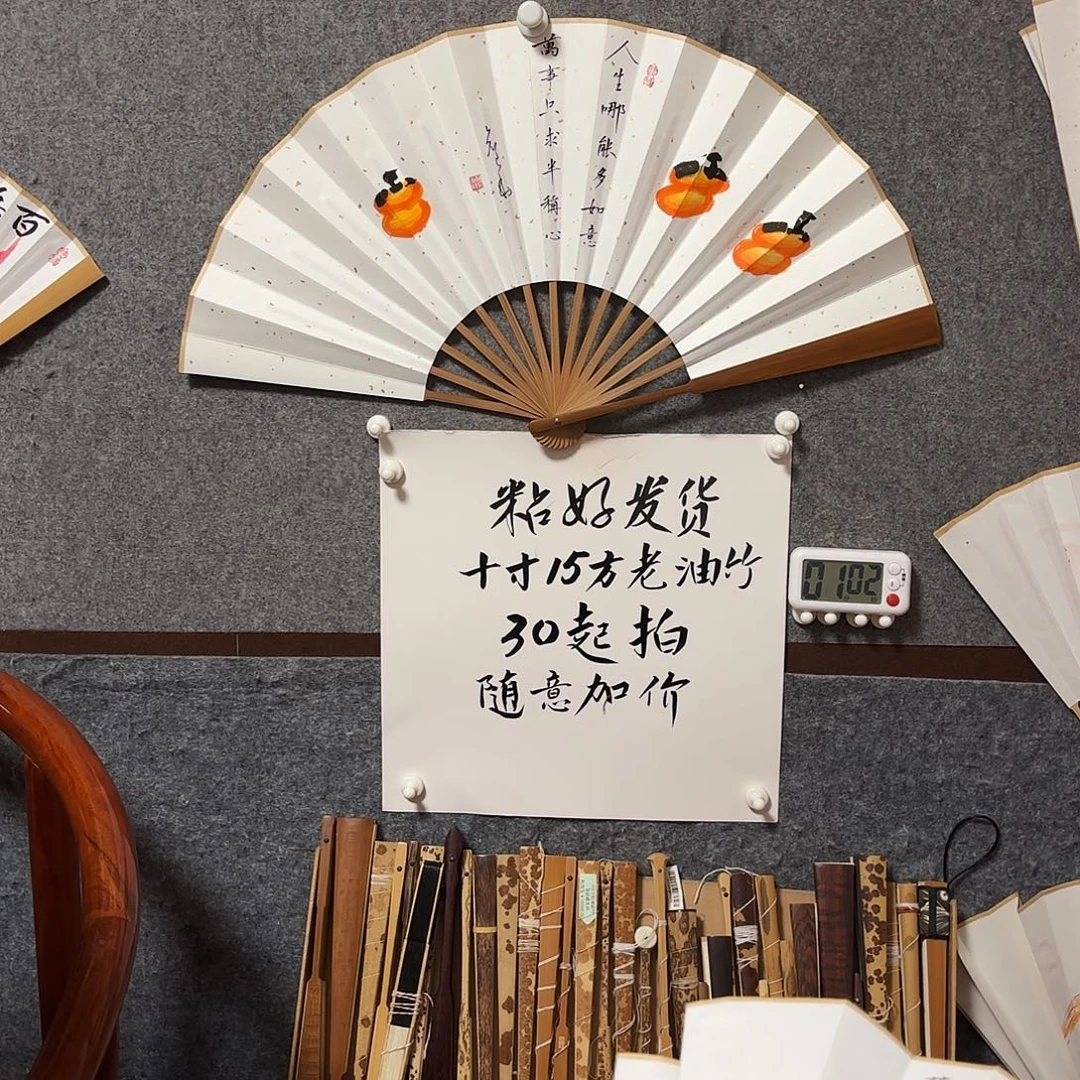 人生哪能多如意
萬事只求半稱心
粘好发货
十寸15方老油竹
30起拍
随意加价
0102
百